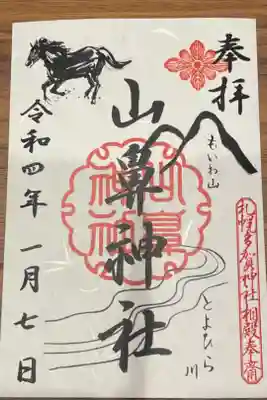 奉拝
もいわ山
札幌多賀神社相殿奉斎
山鼻神社
とよひら川
令和四年一月七日